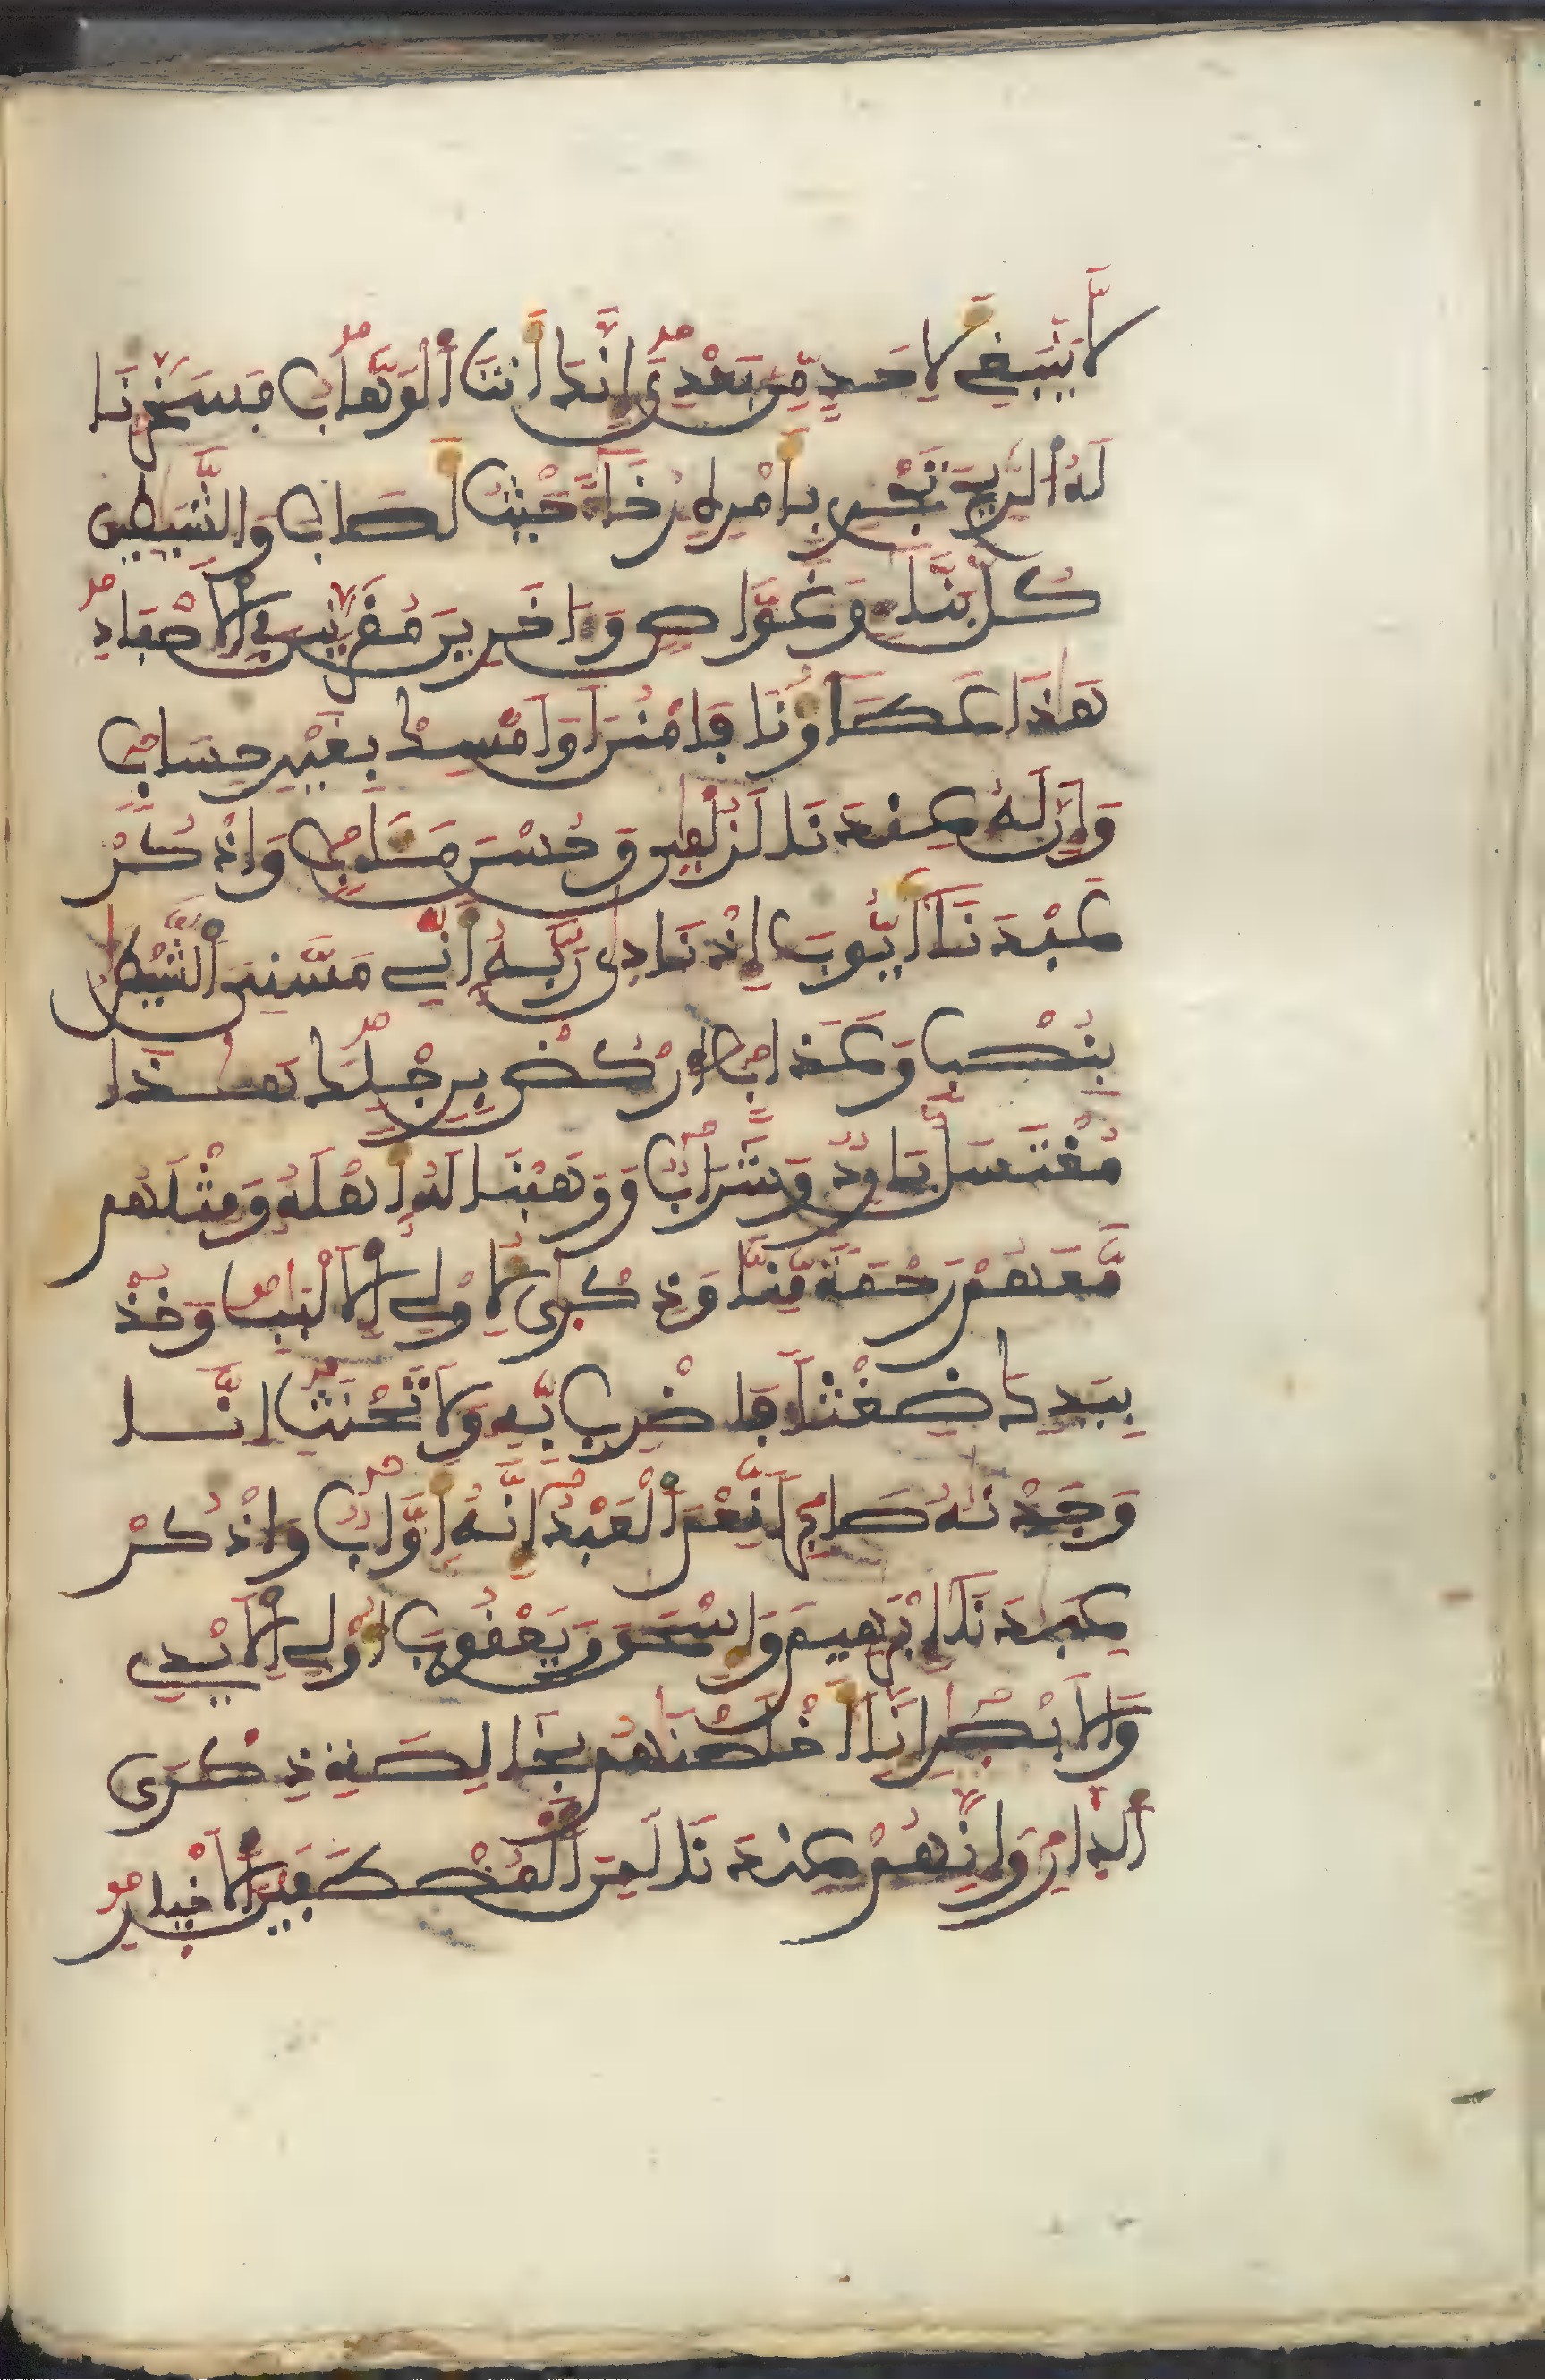 لَّا يَنۢبَغِي لِأَحَدٍ مِّنۢ بَعْدِيَ إِنَّكَ أَنتَ ٱلْوَهَّابُ فَسَخَّرْنَا
لَهُ ٱلرِّيحَ تَجْرِي بِأَمْرِهِ رُخَآءً حَيْثُ أَصَابَ وَالشَّيَٰطِينَ
كُلَّ بَنَّآءٍ وَغَوَّاصٍ وَءَاخَرِينَ مُقَرَّنِينَ فِي ٱلْأَصْفَادِ
هَٰذَا عَطَآؤُنَا فَامْنُنَ اَوَ اَمْسِكْ بِغَيْرِ حِسَابٍ
وَإِنَّ لَهُ عِندَنَا لَزُلْفَىٰ وَحُسْنَ مَـَٔابٍ وَاذْكُرْ
عَبْدَنَآ أَيُّوبَ إِذْ نَادَىٰ رَبَّهُ أَنِّي مَسَّنِيَ ٱلشَّيْطَٰنُ
بِنُصْبٍ وَعَذَابٍ ٱرْكُضْ بِرِجْلِكَ هَٰذَا
مُغْتَسَلٌ بَارِدٌ وَشَرَابٌ وَوَهَبْنَا لَهُ أَهْلَهُ وَمِثْلَهُم
مَّعَهُمْ رَحْمَةً مِّنَّا وَذِكْرَىٰ لِأُوْلِي ٱلْأَلْبَٰبِ وَخُذْ
بِيَدِكَ ضِغْثًا فَاضْرِب بِّهِ وَلَا تَحْنَثْ إِنَّا
وَجَدْنَٰهُ صَابِرًا نِّعْمَ ٱلْعَبْدُ إِنَّهُ أَوَّابٌ وَاذْكُرْ
عِبَٰدَنَآ إِبْرَٰهِيمَ وَإِسْحَٰقَ وَيَعْقُوبَ أُوْلِي ٱلْأَيْدِي
وَالْأَبْصَٰرِ إِنَّآ أَخْلَصْنَٰهُم بِخَالِصَةِ ذِكْرَى
ٱلدَّارِ وَإِنَّهُمْ عِندَنَا لَمِنَ ٱلْمُصْطَفَيْنَ ٱلْأَخْيَارِ